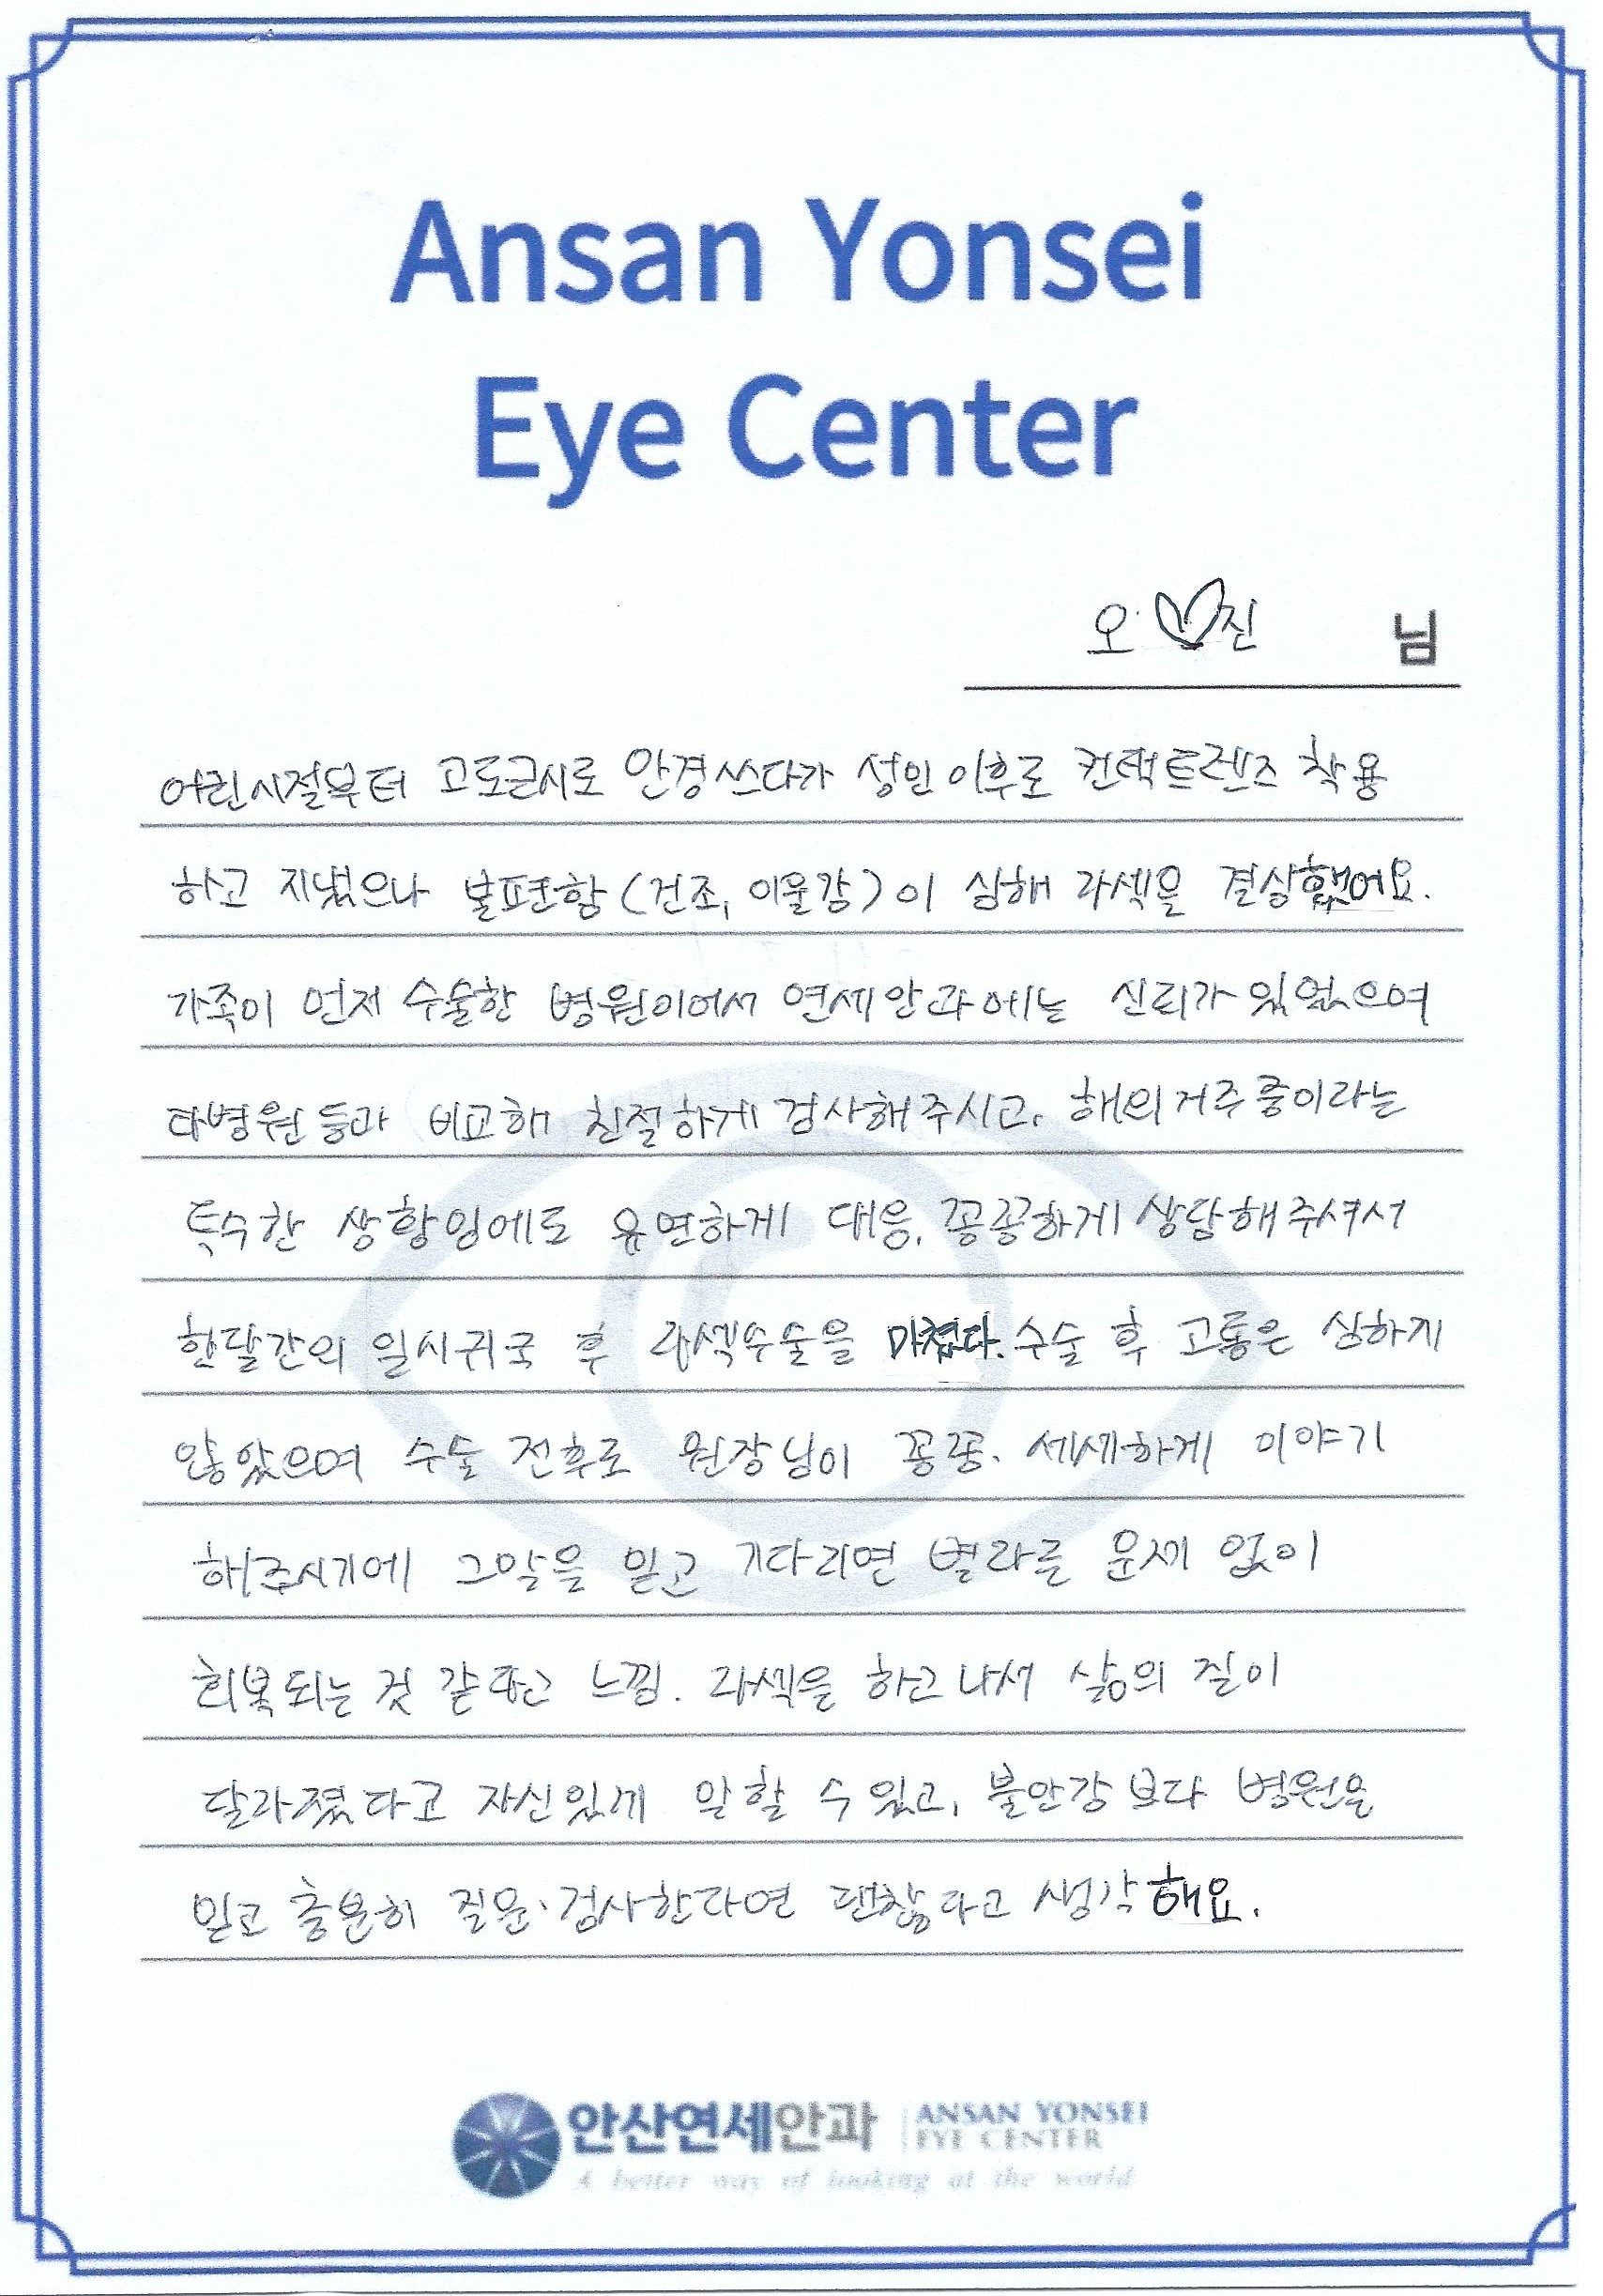 Ansan Yonsei
Eye Center
오♡진 님
어린시절부터 고도근시로 안경쓰다가 성인 이후로 컨택트렌즈 착용
하고 지냈으나 불편함(건조, 이물감)이 심해 라섹을 결심했어요.
가족이 먼저 수술한 병원이어서 연세안과에는 신뢰가 있었으며
타병원들과 비교해 친절하게 검사해주시고, 해외거주중이라는
특수한 상황임에도 유연하게 대응, 꼼꼼하게 상담해주셔서
한달간의 일시귀국 후 라섹수술을 마쳤다. 수술 후 고통은 심하게
않았으며 수술 전후로 원장님이 꼼꼼. 세세하게 이야기
해주시기에 그말을 믿고 기다리면 별다른 문제 없이
회복되는 것 같다고 느낌. 라섹을 하고나서 삶의 질이
달라졌다고 자신있게 말할 수 있고, 불안감보다 병원을
믿고 충분히 질문·검사한다면 괜찮다고 생각해요.
안산연세안과 ANSAN YONSEI
EYE CENTER
A better way of looking at the world